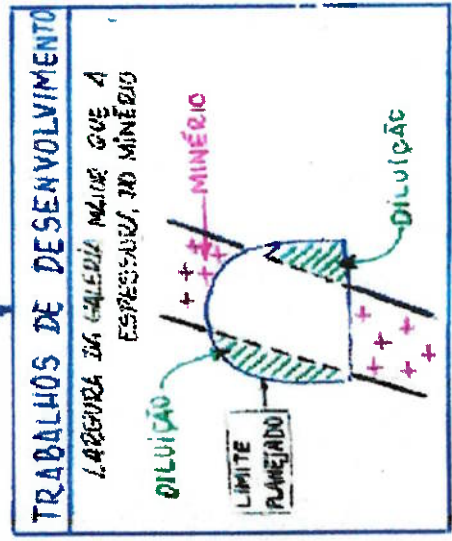 TRABALHOS DE DESENVOLVIMENTO
LARGURA DA GALERIA MAIOR QUE A
ESPESSURA DO MINÉRIO
DILUIÇÃO
MINÉRIO
LIMITE
PLANEJADO
DILUIÇÃO